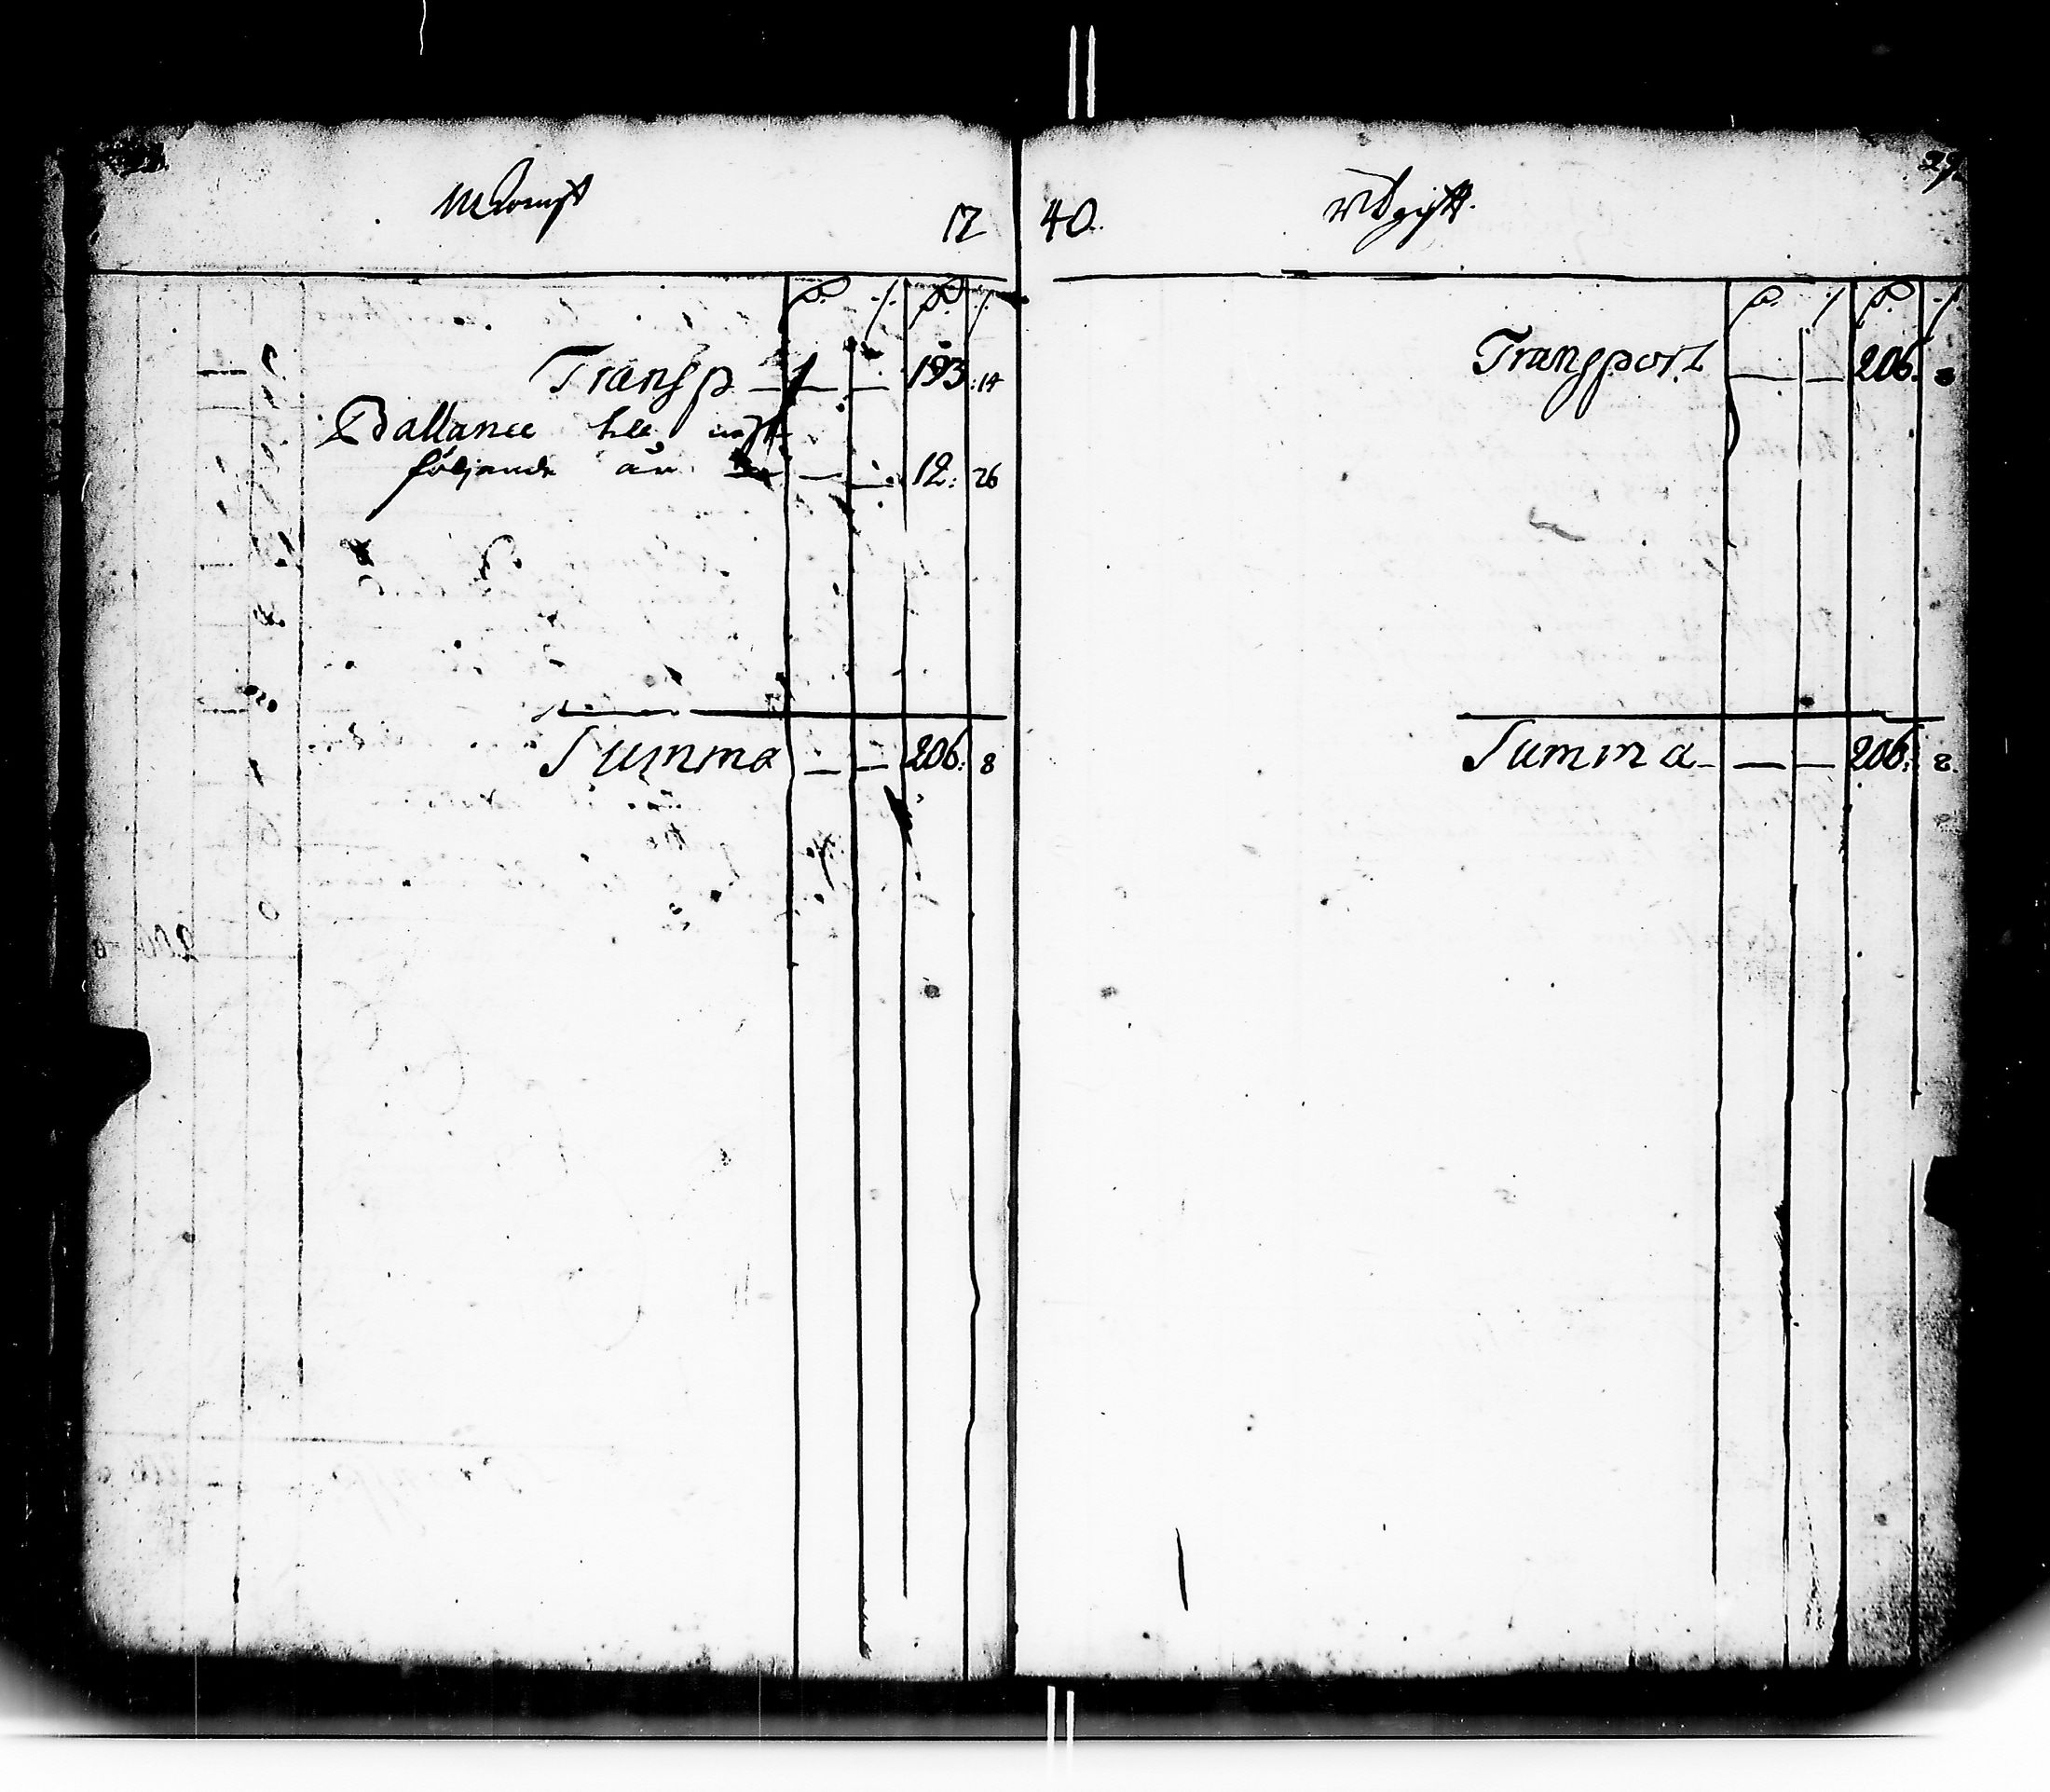 Inkomst
17
Transp — — 193:14
Ballance till näst
följande år — — 12:26
Summa — — 206:8
40.
Utgifft.
Transport — — 206:8
Summa — — 206:8.